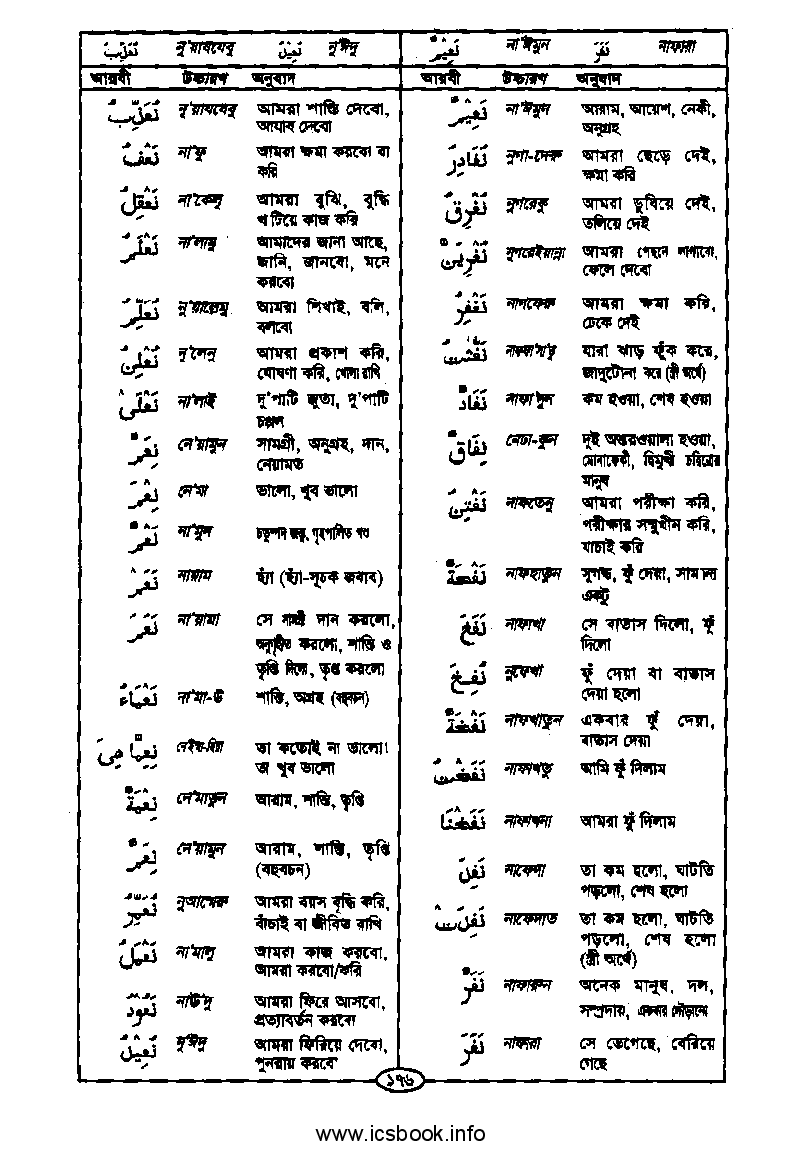 نُعَذِّبُ নু'য়াযযেবু نُعِيْدُ নু'ঈদু
আরবী উচ্চারণ অনুবাদ
نُعَذِّبُ নু'য়াযযেবু আমরা শাস্তি দেবো,
আযাব দেবো
نَعْفُ না'ফু আমরা ক্ষমা করবো বা
করি
نَعْقِلُ না'কেলু আমরা বুঝি, বুদ্ধি
খাটিয়ে কাজ করি
نَعْلَمُ না'লামু আমাদের জানা আছে,
জানি, জানবো, মনে
করবো
نُعَلِّمُ নু'য়াল্লেমু আমরা শিখাই, বলি,
বলবো
نُعْلِنُ নু'লেনু আমরা প্রকাশ করি,
ঘোষণা করি, খোলা রাখি
نَعْلَىْ না'লাই দু'পাটি জুতা, দু'পাটি
চপ্পল
نِعَمٌ নে'য়ামুন সামগ্রী, অনুগ্রহ, দান,
নেয়ামত
نِعْمَ নে'মা ভালো, খুব ভালো
نَعَمٌ না'মুন চতুষ্পদ জন্তু, গৃহপালিত পশু
نَعَمْ নায়াম হ্যাঁ (হ্যাঁ-সূচক জবাব)
نَعَّمَ না'য়ামা সে সামগ্রী দান করলো,
অনুগৃহীত করলো, শান্তি ও
তৃপ্তি দিলো, তৃপ্ত করলো
نَعْمَاءُ না'মা-উ শান্তি, অগ্রহ (বহুবচন)
نِعِمَّا هِىَ নেইম্মা-হিয়া তা কতোই না ভালো!
তা খুব ভালো
نِعْمَةٌ নে'মাতুন আরাম, শান্তি, তৃপ্তি
نِعَمٌ নে'য়ামুন আরাম, শান্তি, তৃপ্তি
(বহুবচন)
نُعَمِّرُ নুআম্মেরু আমরা বয়স বৃদ্ধি করি,
বাঁচাই বা জীবিত রাখি
نَعْمَلُ না'মালু আমরা কাজ করবো,
আমরা করবো/করি
نَعُوْدُ নাউ'দু আমরা ফিরে আসবো,
প্রত্যাবর্তন করবো
نُعِيْدُ নু'ঈদু আমরা ফিরিয়ে দেবো,
পুনরায় করবো
نَعِيْمٌ না'ঈমুন نَفَرَ নাফারা
আরবী উচ্চারণ অনুবাদ
نَعِيْمٌ না'ঈমুন আরাম, আয়েশ, নেকী,
অনুগ্রহ
نُغَادِرُ নুগা-দেরু আমরা ছেড়ে দেই,
ক্ষমা করি
نُغْرِقُ নুগরেকু আমরা ডুবিয়ে দেই,
তলিয়ে দেই
نُغْرِيَنَّ নুগরেইয়ান্না আমরা পেছনে লাগাবো,
ফেলে দেবো
نَغْفِرُ নাগফেরু আমরা ক্ষমা করি,
ঢেকে দেই
نَفّٰثٰتِ নাফ্ফা'সা'তু যারা ঝাড় ফুঁক করে,
জাদুটোনা করে (স্ত্রী অর্থে)
نَفَادٌ নাফা'দুন কম হওয়া, শেষ হওয়া
نِفَاقٌ নেফা-কুন দুই অন্তরওয়ালা হওয়া,
মোনাফেকী, দ্বিমুখী চরিত্রের
মানুষ
نَفْتِنُ নাফতেনু আমরা পরীক্ষা করি,
পরীক্ষার সম্মুখীন করি,
যাচাই করি
نَفْحَةٌ নাফহাতুন সুগন্ধ, ফুঁ দেয়া, সামান্য
একটু
نَفَخَ নাফাখা সে বাতাস দিলো, ফুঁ
দিলো
نُفِخَ নুফেখা ফুঁ দেয়া বা বাতাস
দেয়া হলো
نَفْخَةٌ নাফখাতুন একবার ফুঁ দেয়া,
বাতাস দেয়া
نَفَخْتُ নাফাখতু আমি ফুঁ দিলাম
نَفَخْنَا নাফাখনা আমরা ফুঁ দিলাম
نَفِدَ নাফেদা তা কম হলো, ঘাটতি
পড়লো, শেষ হলো
نَفِدَتْ নাফেদাত তা কম হলো, ঘাটতি
পড়লো, শেষ হলো
(স্ত্রী অর্থে)
نَفَرٌ নাফারুন অনেক মানুষ, দল,
সম্প্রদায়, একবার দৌড়ানো
نَفَرَ নাফারা সে ভেগেছে, বেরিয়ে
গেছে
১৭৬
www.icsbook.info